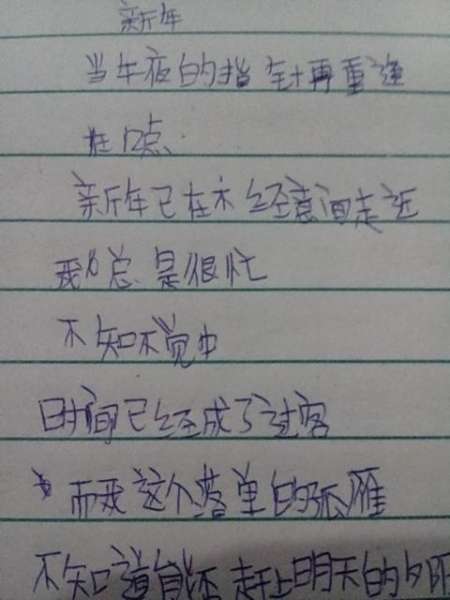 新年
当午夜的指针再重逢
在12点
新年已在不经意间走近
我总是很忙
不知不觉中
时间已经成了过客
而我这个落单的孤雁
不知道能否赶上明天的夕阳